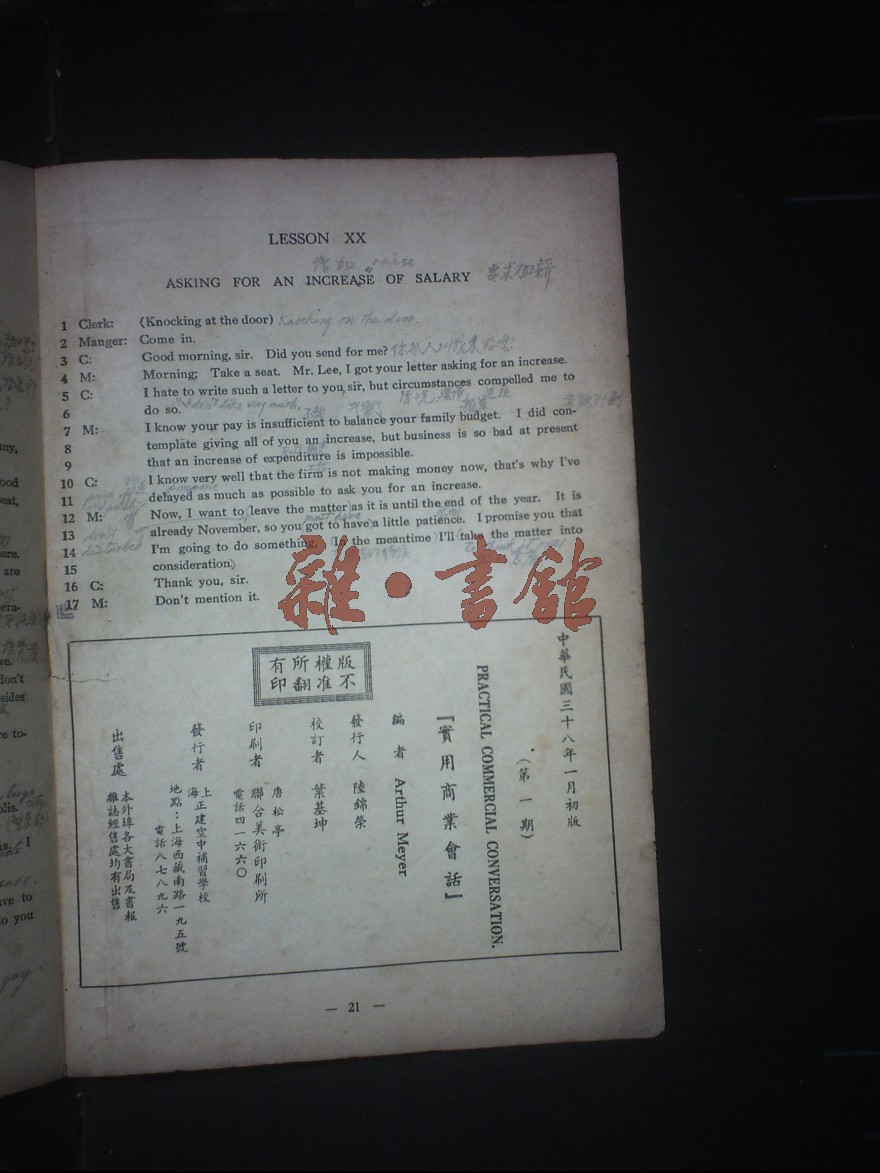 LESSON XX
增加 raise
ASKING FOR AN INCREASE OF SALARY 要求加薪
1 Clerk: (Knocking at the door) Knocking on the door.
2 Manger: Come in.
3 C: Good morning, sir. Did you send for me?
4 M: Morning; Take a seat. Mr. Lee, I got your letter asking for an increase.
5 C: I hate to write such a letter to you, sir, but circumstances compelled me to
6 do so.
don't like very much
7 M: I know your pay is insufficient to balance your family budget. I did con-
8 template giving all of you an increase, but business is so bad at present
9 that an increase of expenditure is impossible.
10 C: I know very well that the firm is not making money now, that's why I've
11 delayed as much as possible to ask you for an increase.
12 M: Now, I want to leave the matter as it is until the end of the year. It is
13 already November, so you got to have a little patience. I promise you that
14 I'm going to do something. In the meantime I'll take the matter into
15 consideration.
16 C: Thank you, sir.
17 M: Don't mention it.
雜·書館
中華民國三十八年一月初版
(第一期)
PRACTICAL COMMERCIAL CONVERSATION.
『實用商業會話』
版權所有
不准翻印
編者 Arthur Meyer
發行人 陸錦榮
校訂者 葉基坤
唐松亭
印刷者 聯合美術印刷所
電話四一六六〇
發行者 上海正建空中補習學校
地點：上海西藏南路一九五號
電話八七八九六
出售處 本外埠各大書局及書報雜誌經售處均有出售
— 21 —